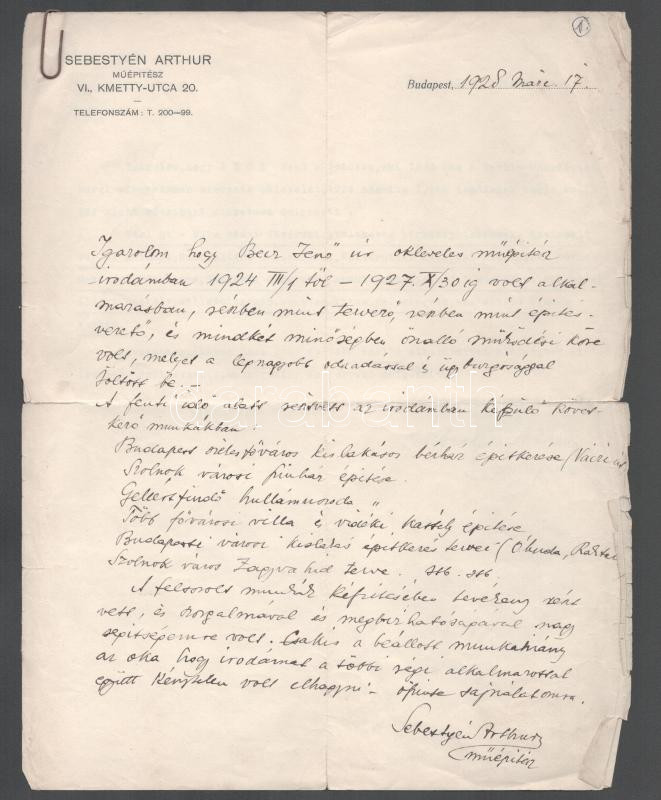 1.
SEBESTYÉN ARTHUR
MŰÉPITÉSZ
VI., KMETTY-UTCA 20.
TELEFONSZÁM: T. 200—99.
Budapest, 1928 márc. 17.
Igazolom hogy Becz Jenő úr okleveles műépitész
irodámban 1924 III/1 től – 1927. X/30 ig volt alkal-
mazásban, részben mint tervező, részben mint épités-
vezető, és mindkét minőségben önálló működési köre
volt, melyet a legnagyobb odaadással és ügybuzgósággal
töltött be. –
A fenti idő alatt résztvett az irodámban készülő követ-
kező munkákban
Budapest székesfőváros kislakásos bérház épitkezése (Váci út
Szolnok városi szinház épitése.
Gellértfürdő hullámuszoda "
Több fővárosi villa és vidéki kastély épitése
Budapest városi kislakás épitkezés tervei (Óbuda,
Szolnok város Zagyva hid terve. stb. stb.
A felsorolt munkák készitésében tevékeny részt
vett, és szorgalmával és megbizhatóságával nagy
segitségemre volt. Csakis a beállott munkahiány
az oka hogy irodámat a többi régi alkalmazottal
együtt kénytelen volt elhagyni – őszinte sajnálatomra.
Sebestyén Arthur
műépitész
darabanth